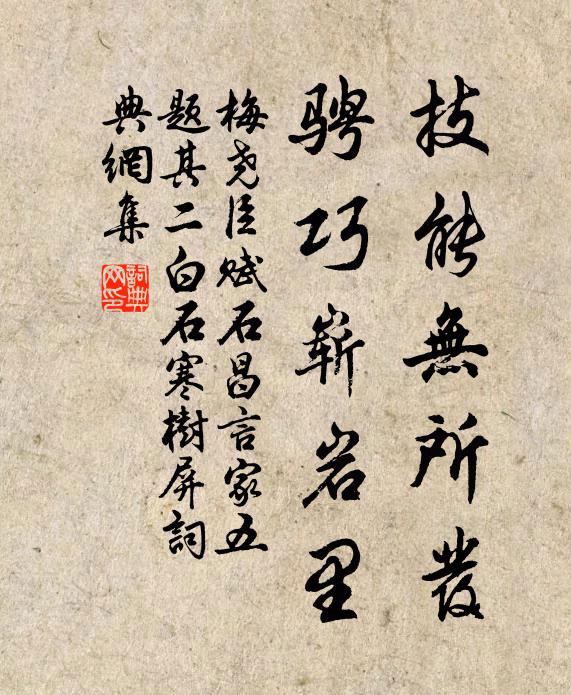 技能無所發
骋巧嶄岩里
梅尧臣賦石昌言家五
题其二白石寒樹屏詞
典網集
詞典
网印